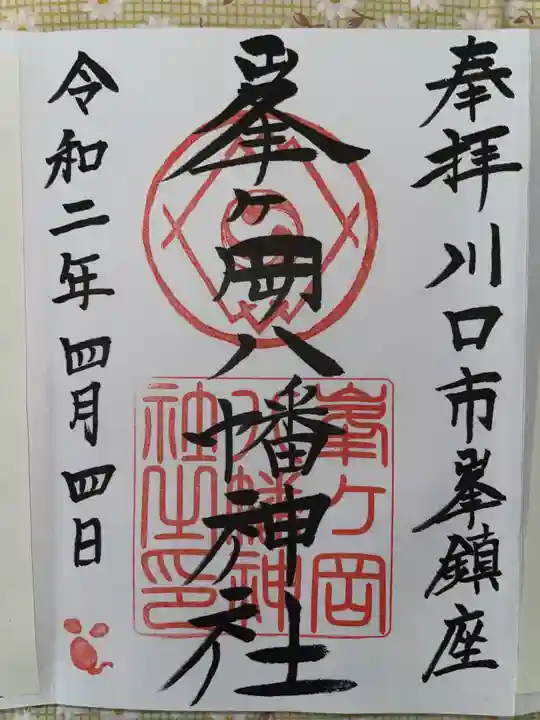 奉拝川口市峯鎮座
峯ヶ岡八幡神社
峯ヶ岡八幡神社之印
令和二年四月四日